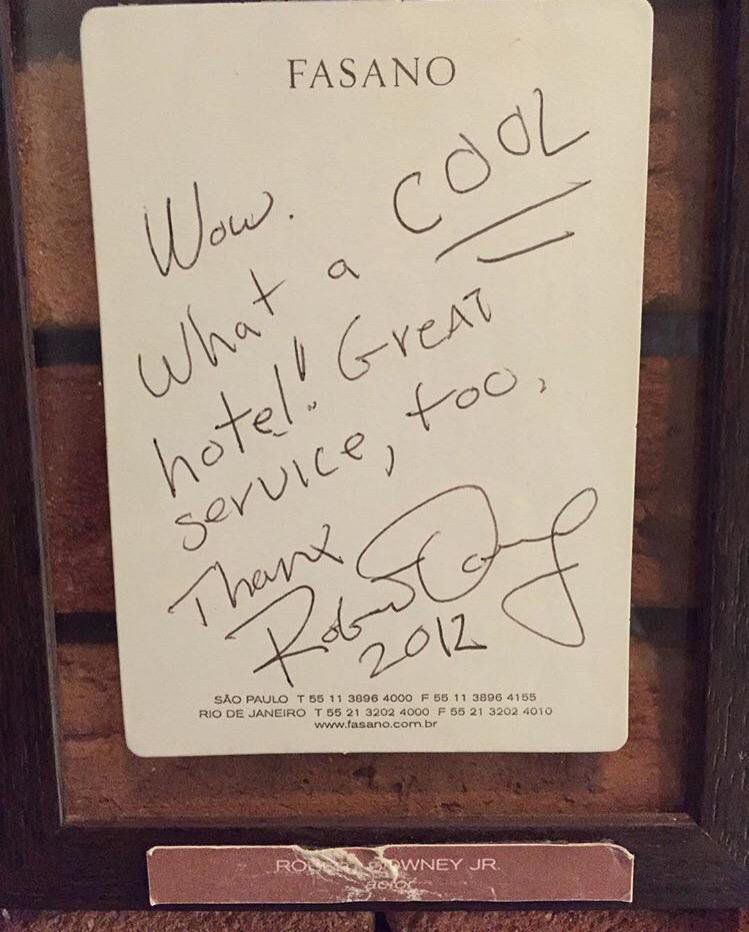 FASANO
Wow.
What a COOL
hotel! Great
service, too.
Thanx
Robert Downey
2012
SÃO PAULO T 55 11 3896 4000 F 55 11 3896 4155
RIO DE JANEIRO T 55 21 3202 4000 F 55 21 3202 4010
www.fasano.com.br
DOWNEY JR.
actor